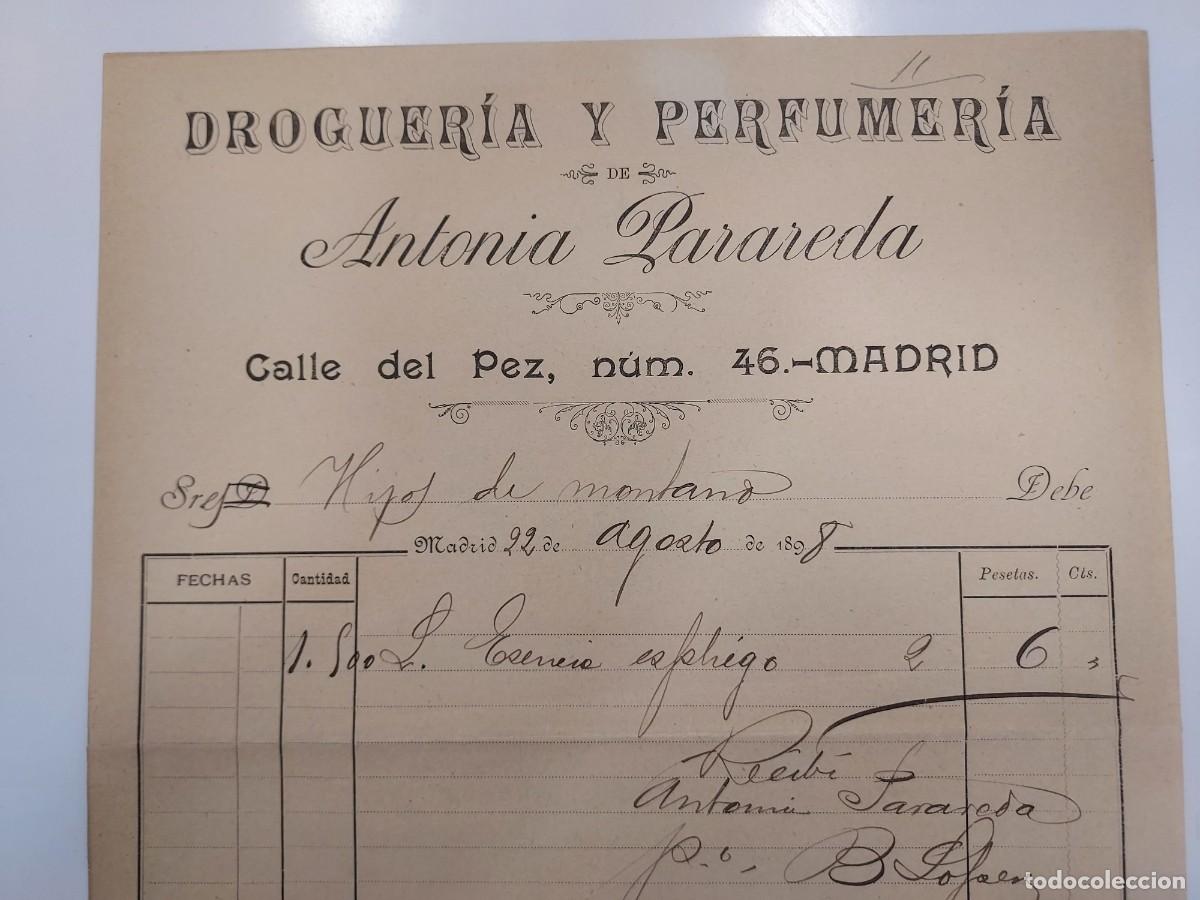 11
DROGUERÍA Y PERFUMERÍA
DE
Antonia Parareda
Calle del Pez, núm. 46.-MADRID
Sres D Hijos de montano Debe
Madrid 22 de agosto de 1898
FECHAS Cantidad Pesetas. Cts.
1.500 L. Esencia espliego 2 6 "
Recibí
Antonia Parareda
p.o,  B
todocoleccion